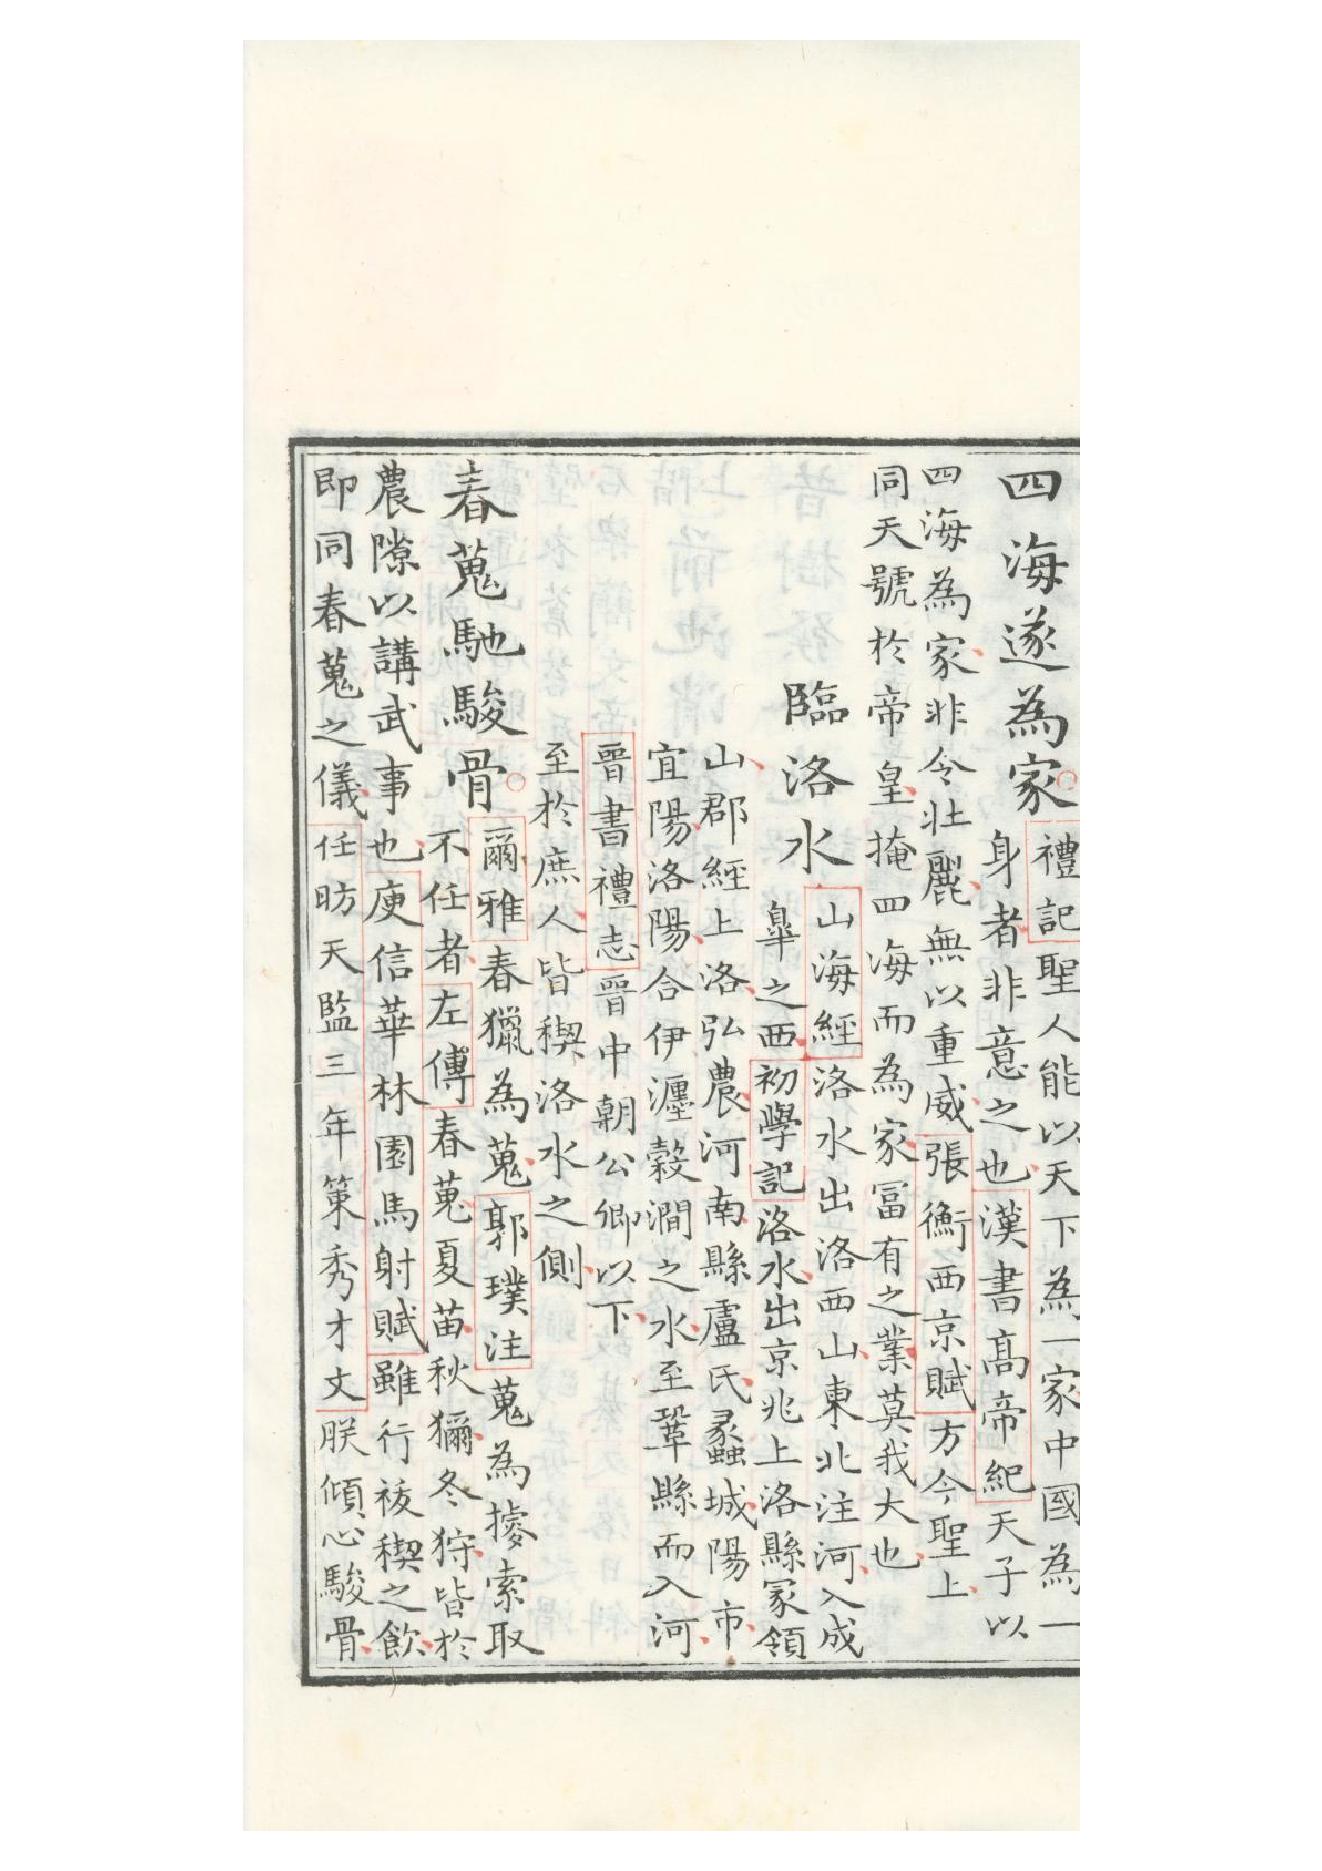 四海遂為家禮記聖人能以天下為一家中國為一
身者非意之也漢書高帝紀天子以
四海為家非令壯麗無以重威張衡西京賦方今聖上
同天號於帝皇掩四海而為家冨有之業莫我大也
臨洛水山海經洛水出洛西山東北注河入成
皐之西初學記洛水出京兆上洛縣冢領
山郡經上洛弘農河南縣盧氏蠡城陽市
宜陽洛陽合伊瀍穀澗之水至鞏縣而入河
晉書禮志晉中朝公卿以下
至於庶人皆禊洛水之側
春蒐馳駿骨爾雅春獵為蒐郭璞注蒐為摉索取
不任者左傳春蒐夏苗秋獮冬狩皆於
農隙以講武事也庾信華林園馬射賦雖行祓禊之飲
即同春蒐之儀任昉天監三年策秀才文朕傾心駿骨